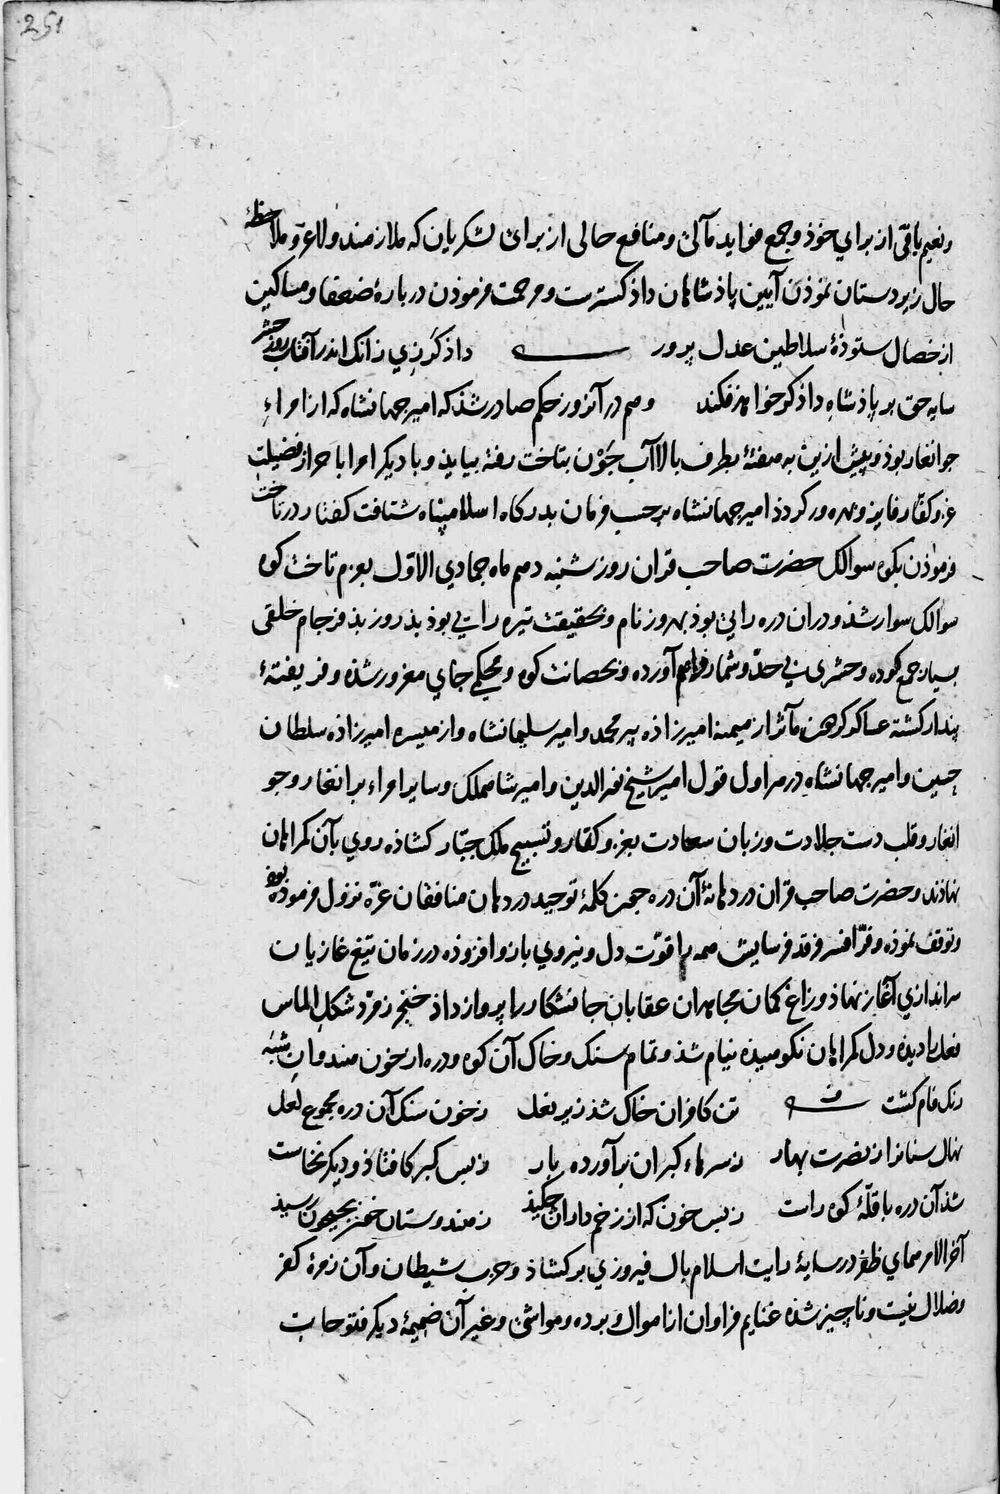 251
ونعیم باقی از برای خوذ وجمع فواید مآلی ومنافع حالی از برای لشکریان که ملازمند ولاغر و ملاحظهٔ
حال زیردستان نموذن آیین پاذشاهان داذ کسترست و مرحمت فرموذن دربارهٔ ضعفا و مساکین
از خصال ستوذهٔ سلاطین عدل پرور داذ کر زی زانک اندر آفتاب روز حشر
سایهٔ حق بر پاذشاه داذ کر خواهز فکند وهم در آنروز حکم صادر شذ که امیر جهانشاه که از امراء
جوانغار بوذ و پیش ازین به هفتهٔ بطرف بالاآب جَوْن بتاخت رفته بیایذ و با دیکر امرا باحراز فضیلت
غزو کفّار فایز و بهره ور کردذ امیر جهانشاه برحسب فرمان بدرکاه اسلام پناه شتافت کفتار در تاخت
فرموذن بکوه سوالک حضرت صاحب قران روز شنبه دهم ماه جمادی الاوّل بعزم تاخت کوه
سوالک سوار شذ و دران دره رایی بوذ بهروز نام و بحقیقت تیره رایی بوذ بذ روز بذ فرجام خلقی
بسیار جمع کرده و حشری بی حدّ و شمار فراهم آورده و بحصانت کوه و محکمی جای مغرور شذه و فریفتهٔ
پندار کشته عساکر کردون مآثر از میمنه امیرزاذه پیر محمد و امیر سلیمانشاه و از میسره امیرزاذه سلطان
حسین و امیر جهانشاه در هراول قول امیر شیخ نورالدین و امیر شاهملک و سایر امراء برانغار و جو
انغار و قلب دست جلادت و زبان سعادت بغزو کفّار و تسبیح ملک جبّار کشاذه روی بآن کمراهان
نهاذند و حضرت صاحب قران در دهانهٔ آن دره چون کلمهٔ توحید در دهان منافقان غرّه نزول فرموذه بوذ
و توقف نموذه و فرّ افسر فرقد فرسایش همه را قوّت دل و نیروی بازو افزوذه در زمان تیغ غازیان
سراندازی آغاز نهاذ و زاغ کمان مجاهدان عقابان جانشکار را پرواز داذ خنجر زمرّد شکل الماس
فعل را دیده و دل کمراهان نکوهیده نیام شذ و تمام سنک و خاک آن کوه و دره از خون هندوان شبه
رنک فام کشت تن کافران خاک شذ زیر نعل ز خون سنک آن دره مجموع لعل
نهال سنانرا از نصرت بهار ز سرهاء کبران برآورده بار ز بس کبر کافتاذ و دیکر نخاست
شذ آن دره با قلّهٔ کوه راست ز بس خون که از زخم داران چکیذ ز هندوستان خون بجیحون رسیذ
آخرالامر همای ظفر در سایهٔ رایت اسلام بال فیروزی برکشاذ و حزب شیطان و آن زمرهٔ کفر
و ضلال نیست و ناچیز شذه غنایم فراوان از اموال و برده و مواشی و غیر آن ضمیمهٔ دیکر فتوحات